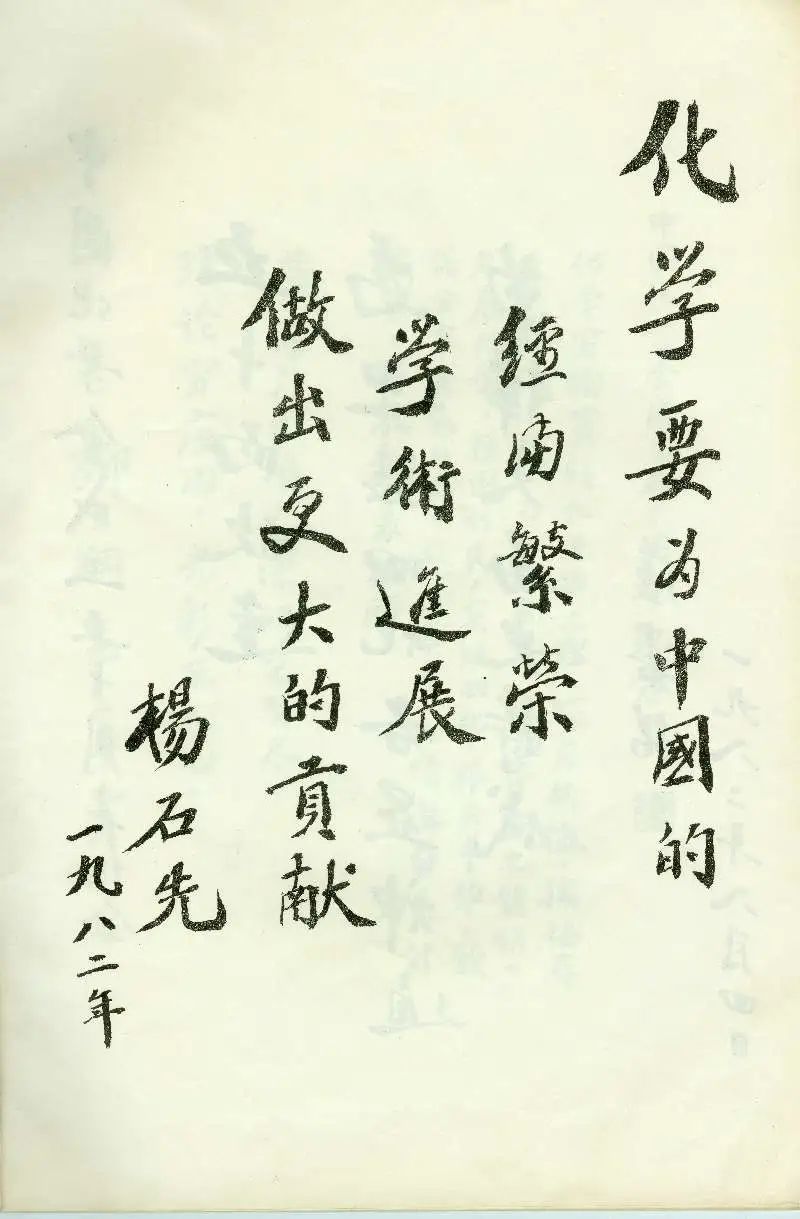 化学要为中國的
經済繁榮
学術進展
做出更大的貢献
楊石先
一九八二年